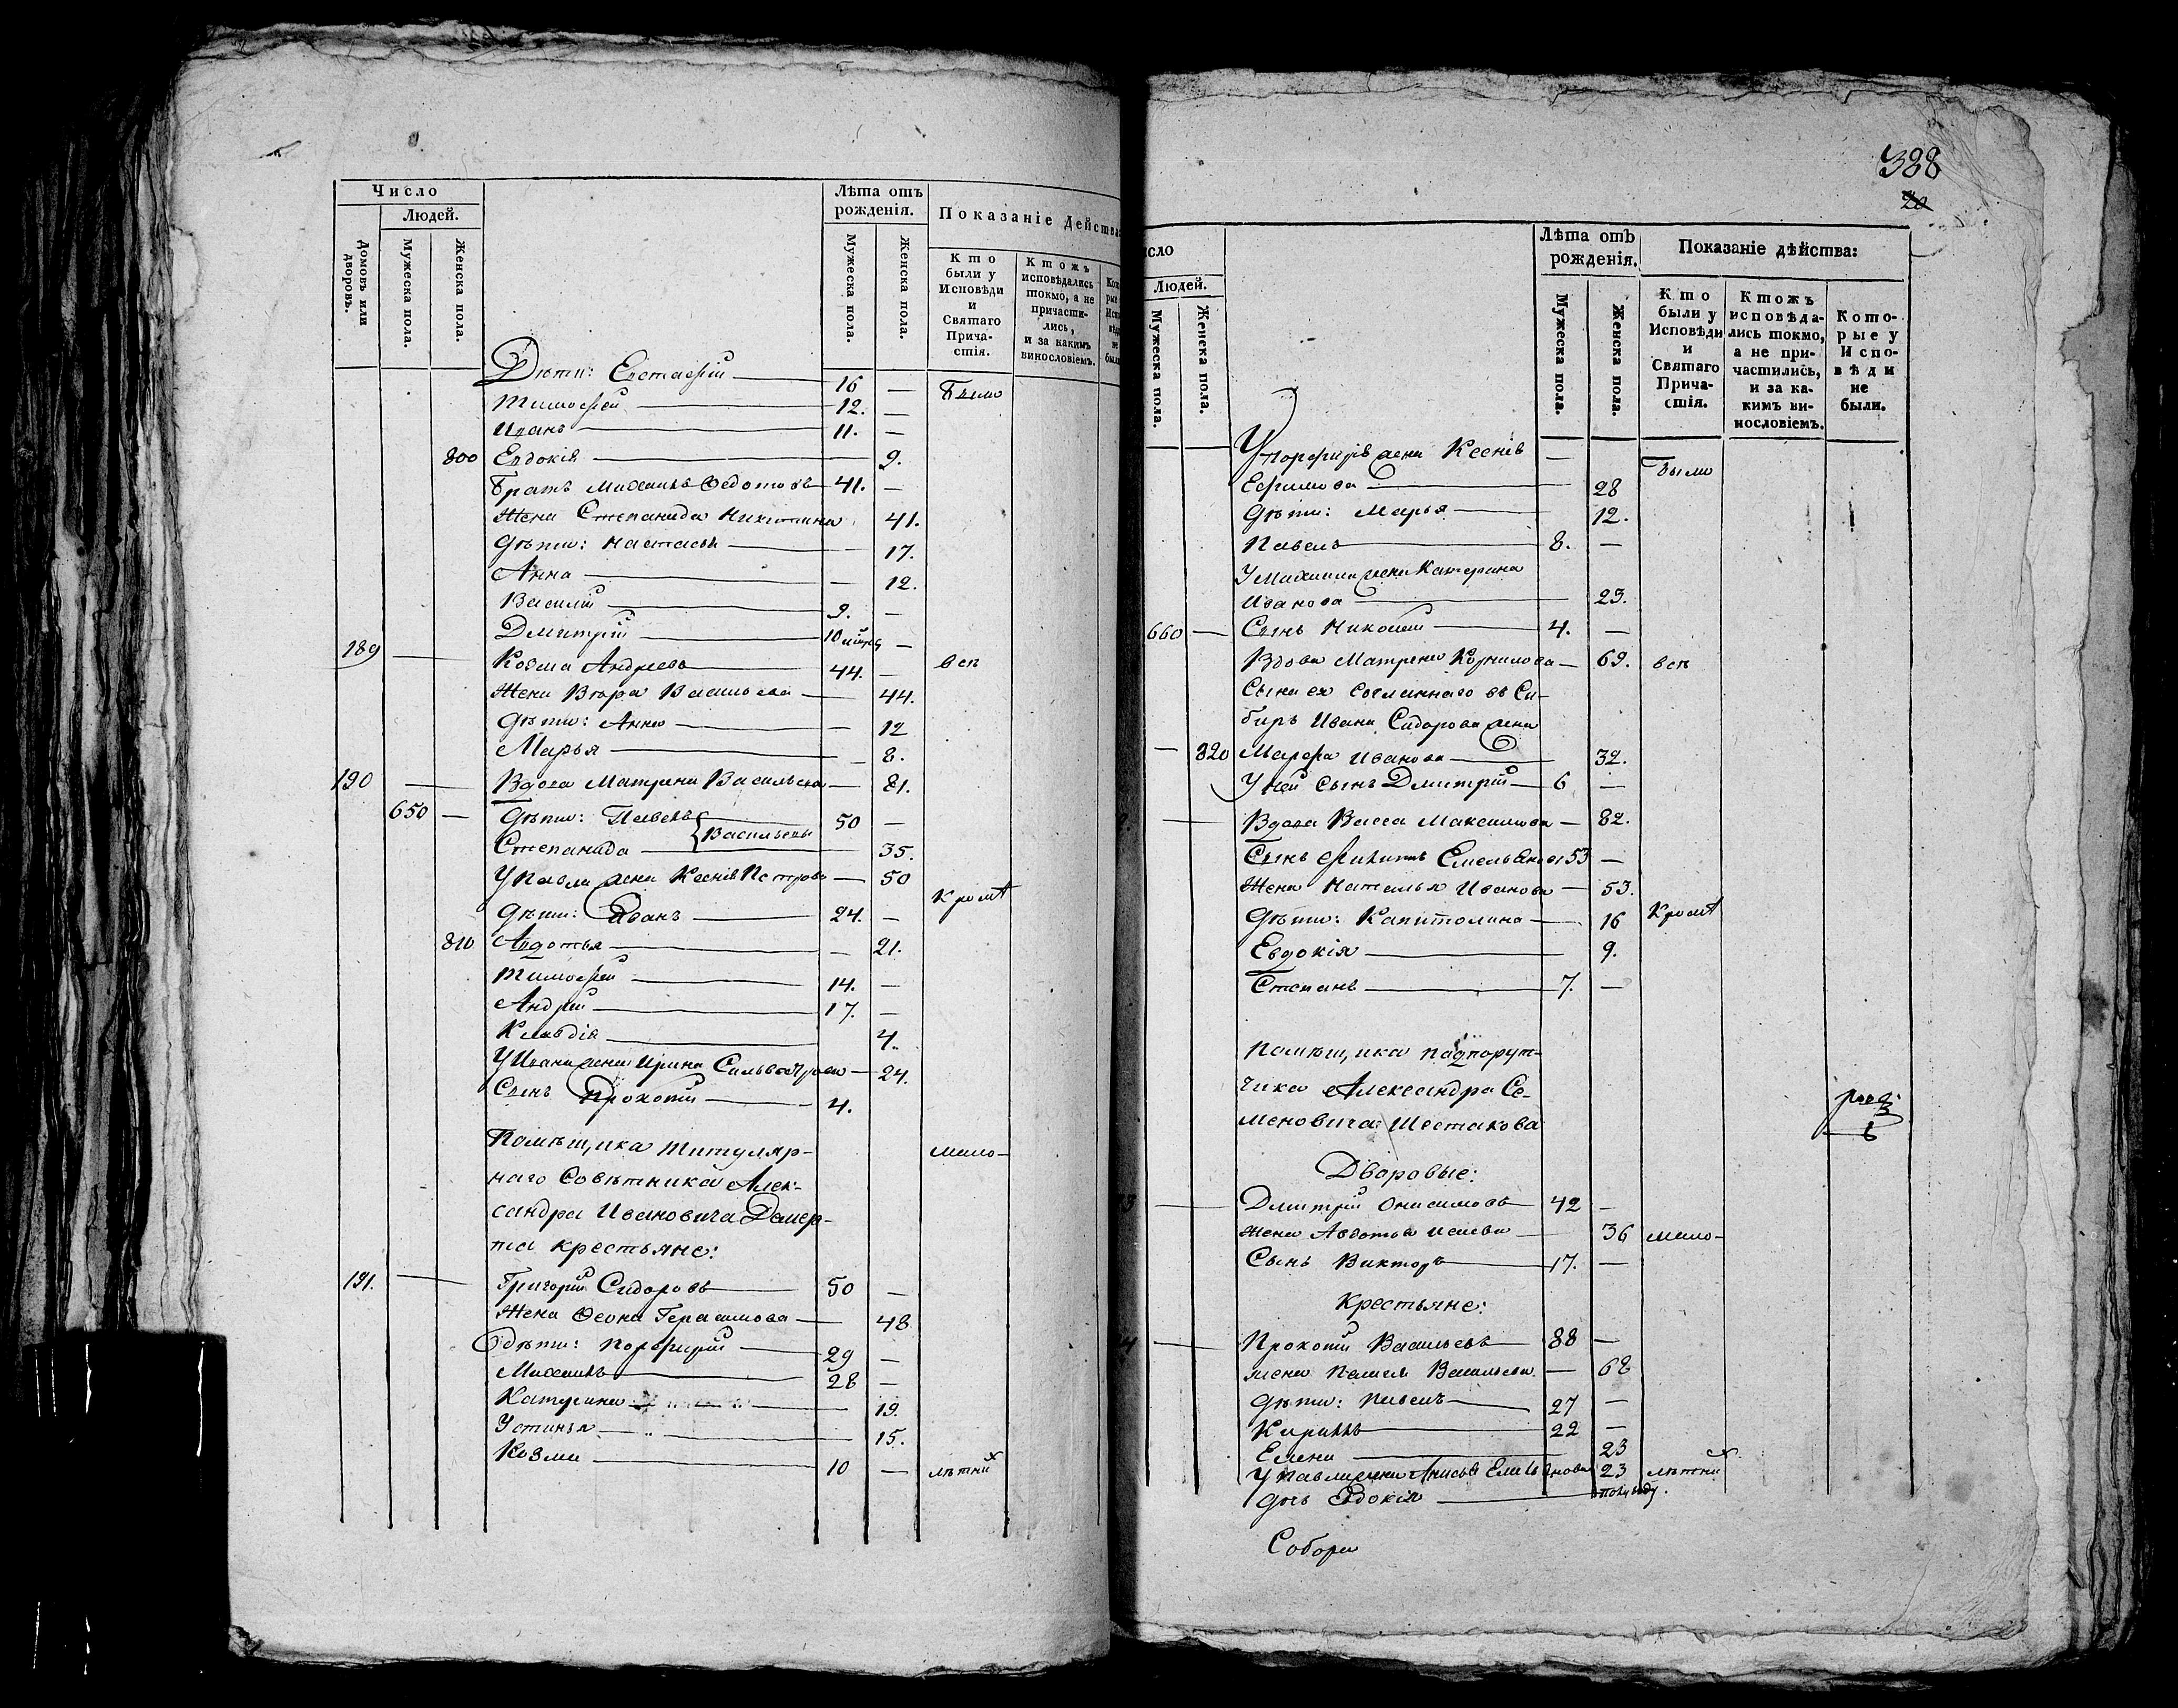 Число
Людей.
Домовъ или дворовъ.
Мужеска пола.
Женска пола.
Лѣта отъ рожденія.
Мужеска пола.
Женска пола.
Показаніе Действа
Кто были у Исповѣди и Святаго Прича-стія.
Ктожъ исповѣдались токмо, а не причасти-лись, и за какимъ винословіемъ.
Дѣти: Евстафій 16 — Были
Тимофей 12. —
Иванъ 11. —
800 Евдокія 9.
Братъ Михаилъ Федотовъ 41. —
Жена Степанида Никитина 41.
Дѣти: Настасья — 17.
Анна — 12.
Василій 9. —
Дмитрій 10 —
189 Козма Андреевъ 44. — всѣ
Жена Вѣра Васильева — 44.
Дѣти: Анна — 12
Марья — 8.
190 Вдова Матрена Васильева — 81.
650 — Дѣти: Павелъ 50 —
Васильевы
Степанида 35.
У Павла жена Ксенія Петрова — 50
Кромѣ
Дѣти: Иванъ 24. —
810 Авдотья — 21.
Тимофей 14. —
Андрей 17. —
Клавдія 4.
У Ивана жена Ирина — 24.
Сынъ Прокопій 4.
Помѣщика Титуляр- мало-
наго Совѣтника Алек-
сандра Ивановича
крестьяне:
191. Григорій Сидоровъ 50 —
Жена Феона Герасимова — 48
Дѣти: Порфирий 29 —
Михаилъ 28 —
Катерина 19.
Устинья 15.
Козма 10 — лѣтних
388
20
сло
Людей.
Мужеска пола.
Женска пола.
Лѣта отъ рожденія.
Мужеска пола.
Женска пола.
Показаніе дѣйства:
Кто были у Исповѣди и Святаго Прича-стія.
Ктожъ исповѣда-лись токмо, а не при-частились, и за ка-кимъ ви-нословіемъ.
Кото-рые у Испо-вѣди не были.
У Порфирія жена Ксенія — Были
Ефимова 28
Дѣти: Марья 12.
Павелъ 8. —
У Михаила жена Катерина
Иванова 23.
660 — Сынъ Николай 4. —
Вдова Матрена Корнилова — 69. всѣ
Сына ея сосланнаго въ Си-
бирь Ивана Сидорова жена
— 820 Марфа Иванова 32.
У ней сынъ Дмитрій 6 —
Вдова Васса Максимова — 82.
Сынъ Филипъ Емельяновъ 53 —
Жена Наталья Иванова — 53.
Дѣти: Капитолина — 16 Кромѣ
Евдокія 9.
Степанъ 7. —
Помѣщика подпорут-
чика Александра Се-
меновича Шестакова
Дворовые:
Дмитрій Онисимовъ 42 —
Жена Авдотья Исаева 36 мало-
Сынъ Викторъ 17. —
Крестьяне:
Прокопій Васильевъ 88 —
жена Васильева — 68
Дѣти: Павелъ 27 —
Кирилъ 22 —
Елена 23
У Павла жена Анисья Емельянова 23 лѣтних
Дочь Евдокія полугоду.
Собора